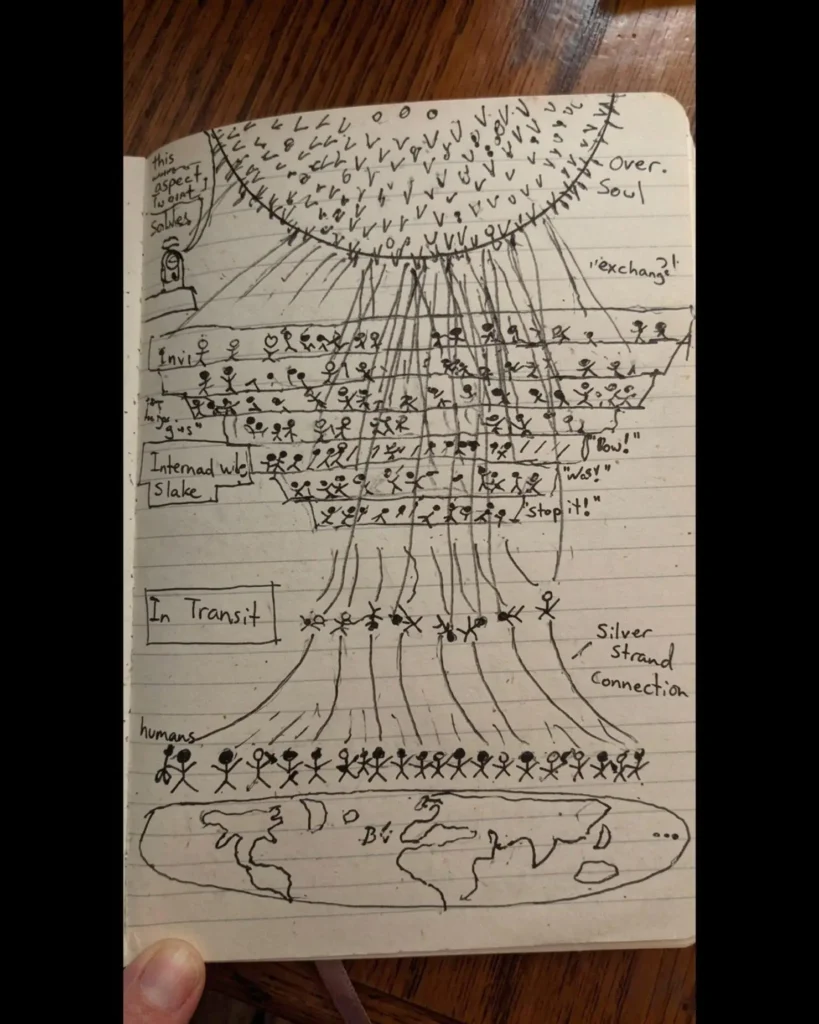 this
aspect,
Solves
Over.
Soul
"exchang?!
Invi
"gils"
"Bow!"
Internad wle
Slake
"was!"
"stop it!"
In Transit
Silver
Strand
Connection
humans